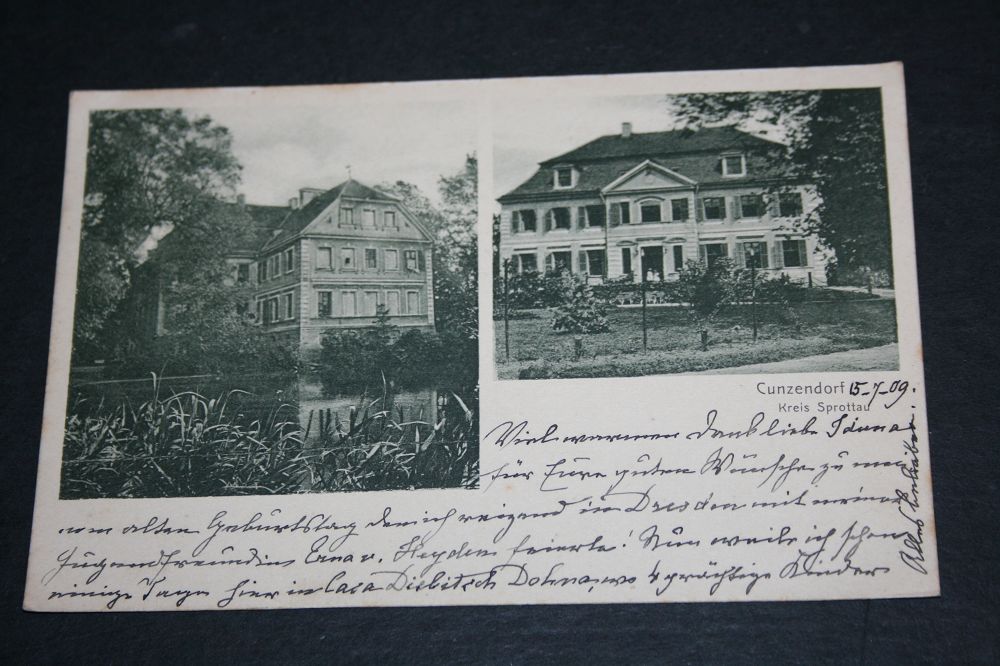 Cunzendorf 15-7-09.
Kreis Sprottau
Viel warmen Dank liebe
für Eure guten Wünsche zu mei-
nem alten Geburtstag den ich reizend in Dresden mit meiner
Jugendfreundin Erna v. Heyden feierte! Nun weile ich schon
einige Tage hier in Casa Diebitsch Dohna, wo 4 prächtige Kinder
Alles